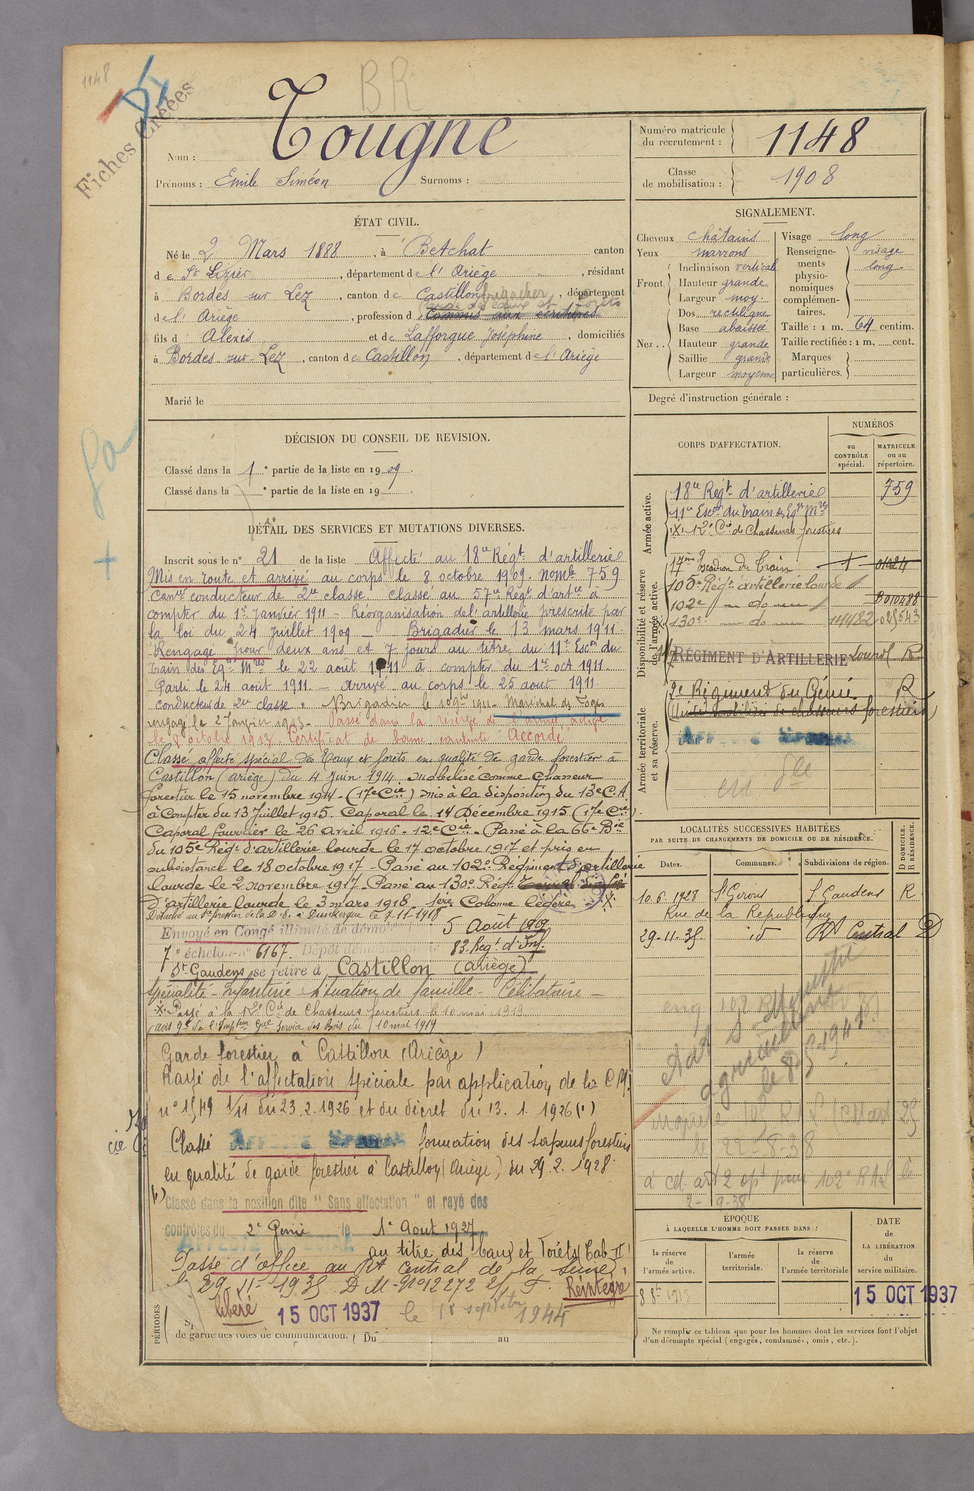 1148
BR
Fiches Créées
Nom : Tougne
Prénoms : Emile Siméon Surnoms :
Numéro matricule du recrutement : 1148
Classe de mobilisation : 1908
ÉTAT CIVIL.
Né le 2 Mars 1888, à Betchat canton
de St Lizier, département de l'Ariège, résidant
à Bordes sur Lez, canton de Castillon, département
de l'Ariège, profession de Commis aux écritures
fils d'Alexis et de Lafforgue Joséphine domiciliés
à Bordes-sur-Lez, canton de Castillon, département de l'Ariège
Marié le
SIGNALEMENT.
Cheveux châtains
Yeux marrons
Front Inclinaison verticale
Hauteur grande
Largeur moy.
Nez Dos rectiligne
Base abaissée
Hauteur grande
Saillie grande
Largeur moyenne
Visage long
Renseignements physionomiques complémentaires. visage long
Taille : 1 m. 64 centim.
Taille rectifiée : 1 m. cent.
Marques particulières.
Degré d'instruction générale :
DÉCISION DU CONSEIL DE REVISION.
Classé dans la 1e partie de la liste en 1909.
Classé dans la e partie de la liste en 19
CORPS D'AFFECTATION.
NUMÉROS
au CONTRÔLE spécial.
MATRICULE ou au répertoire.
Armée active.
18e Régt d'artillerie 759
11e Escon du Train des Eqes Mres
12e Cie de Chasseurs forestiers
Disponibilité et réserve de l'armée active.
17me Escadron du Train
105e Régt artillerie lourde
102e — do —
130e — do —
RÉGIMENT D'ARTILLERIE Lourde R
Armée territoriale et sa réserve.
2e Régiment du Génie R
DÉTAIL DES SERVICES ET MUTATIONS DIVERSES.
Inscrit sous le n° 21 de la liste Affecté au 18e Régt d'artillerie
Mis en route et arrivé au corps le 8 octobre 1909. nomle 759
Canr conducteur de 2e classe. Classé au 57e Régt d'arte à
compter du 1er Janvier 1911 - Réorganisation de l'artillerie prescrite par
la loi du 24 Juillet 1909 - Brigadier le 13 mars 1911.
Rengagé pour deux ans et 7 jours au titre du 11e Escon du
train des Eqes Mres le 22 août 1911 à compter du 1er oct 1911.
Parti le 24 août 1911 - arrivé au corps le 25 août 1911
conducteur de 2e classe. Brigadier le 1911 - Maréchal des Logis
rengagé le 2 Janvier 1913 - Passé dans la réserve de l'armée active
le 8 octobre 1913 Certificat de bonne conduite "Accordé"
Classé affecté spécial des Eaux et forêts en qualité de garde forestier à
Castillon (ariège) du 4 Juin 1914. Mobilisé comme Chasseur
forestier le 15 novembre 1914 - (17e Cie) mis à la disposition du 13e C.A.
à compter du 13 Juillet 1915. Caporal le 14 Décembre 1915 (17e Cie)
Caporal fourrier le 26 avril 1916 - 12e Cie - Passé à la 66e Bie
du 105e Régt d'artillerie lourde le 17 octobre 1917 et pris en
subsistance le 18 octobre 1917 - Passé au 102e Régiment d'artillerie
lourde le 2 novembre 1917 - Passé au 130e Régt
d'artillerie lourde le 3 mars 1918. 1ère Colonne légère
Envoyé en Congé illimité de démo 5 Août 1919
7e échelon n° 6167. Dépôt dém 83. Régt d'Inf.
St Gaudens se retire à Castillon (Ariège)
Spécialité - Infanterie Situation de famille - Célibataire -
Passé à la 12e Cie de Chasseurs forestiers le 10 mai 1919
Garde forestier à Castillon (Ariège)
Rayé de l'affectation spéciale par application de la C.M.
n° 1549 1/11 du 23.2.1926 et du décret du 13.1.1926 (1)
Classé AFFECTÉ SPÉCIAL formation des sapeurs forestiers
en qualité de garde forestier à Castillon (Ariège) du 29.2.1928.
Classé dans la position dite "Sans affectation" et rayé des
contrôles du 2e Génie le 1er Août 1927
au titre des Eaux et Forêts Tab II
Passé d'office au Rt Central de la Seine,
29-11-1935 Réintégré
Libéré 15 OCT 1937 le 18 septembre 1944
de garde des voies de communication. Du au
PÉRIODES
LOCALITÉS SUCCESSIVES HABITÉES
PAR SUITE DE CHANGEMENTS DE DOMICILE OU DE RÉSIDENCE.
Dates. Communes. Subdivisions de région. D DOMICILE. R RÉSIDENCE.
10.6.1928 St Girons St Gaudens R
Rue de la République
29-11-35 id Rt Central D
le 22-8-38
2-9-38
ÉPOQUE
À LAQUELLE L'HOMME DOIT PASSER DANS :
la réserve de l'armée active.
l'armée territoriale.
la réserve de l'armée territoriale
DATE de LA LIBÉRATION du service militaire.
15 OCT 1937
Ne remplir ce tableau que pour les hommes dont les services font l'objet
d'un décompte spécial (engagés, condamnés, omis, etc.).